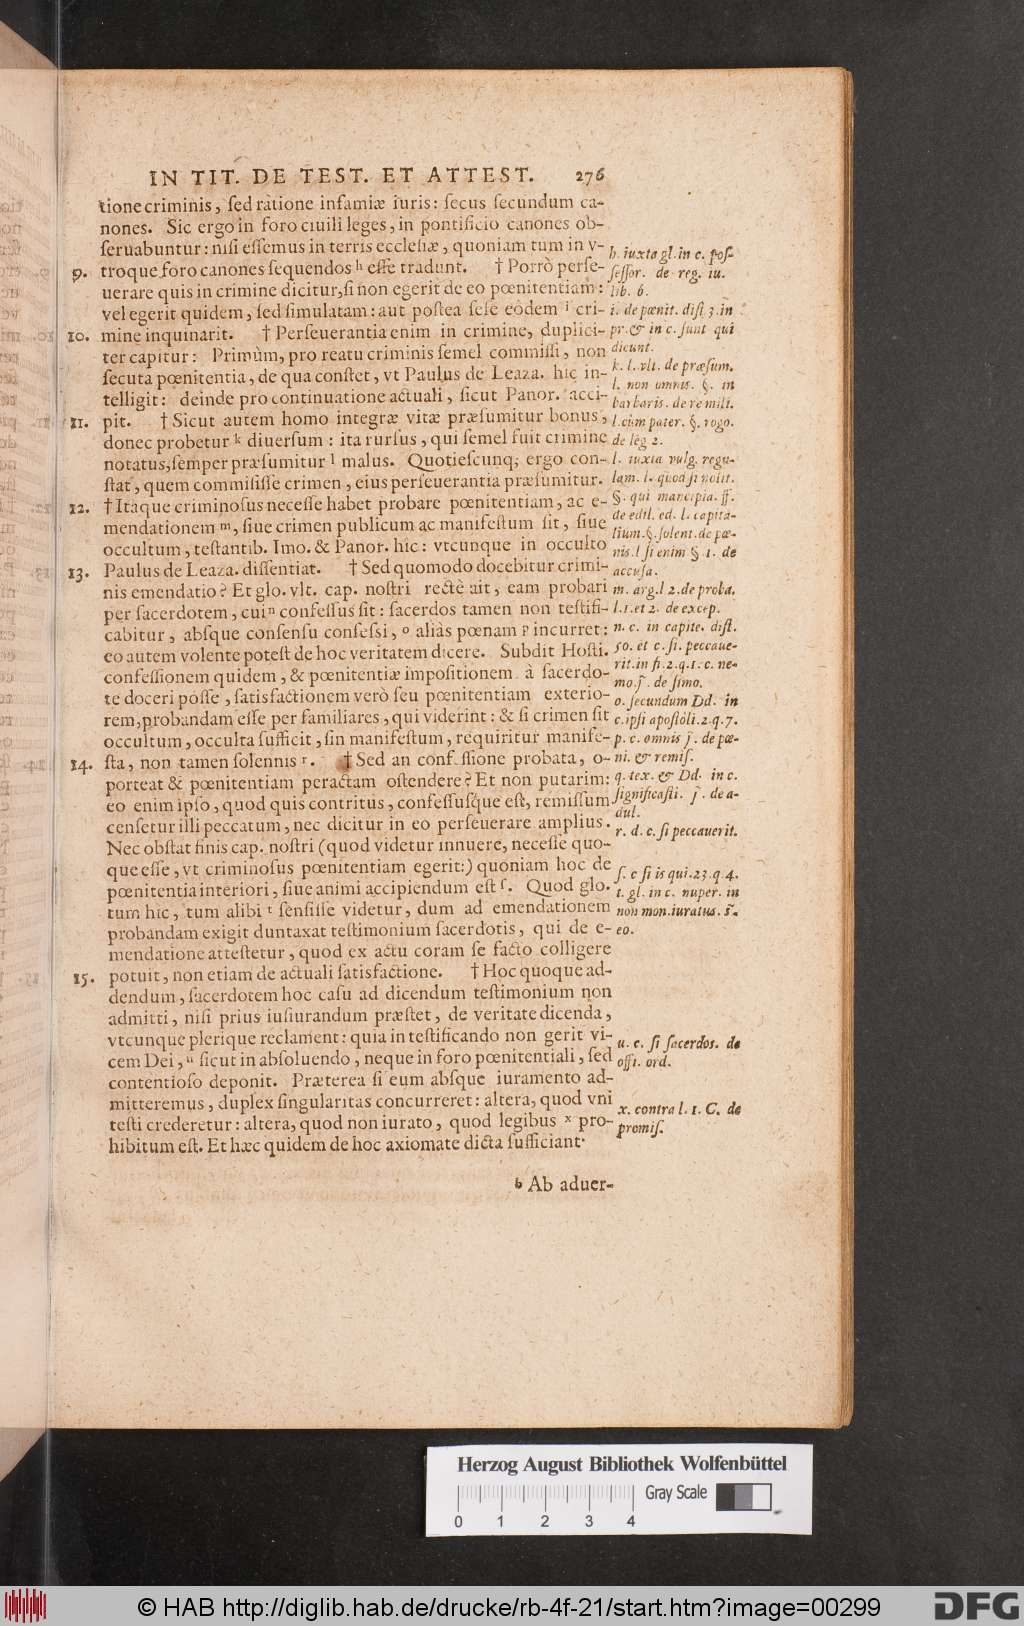 IN TIT. DE TEST. ET ATTEST. 276
tione criminis, sed ratione infamiæ iuris: secus secundum ca-
nones. Sic ergo in foro ciuili leges, in pontificio canones ob-
seruabuntur: nisi essemus in terris ecclesiæ, quoniam tum in v-
9. troque foro canones sequendos h esse tradunt. † Porrò perse-
uerare quis in crimine dicitur, si non egerit de eo pœnitentiam:
vel egerit quidem, sed simulatam: aut postea sese eodem i cri-
10. mine inquinarit. † Perseuerantia enim in crimine, duplici-
ter capitur: Primùm, pro reatu criminis semel commissi, non
secuta pœnitentia, de qua constet, vt Paulus de Leaza. hic in-
telligit: deinde pro continuatione actuali, sicut Panor. acci-
11. pit. † Sicut autem homo integræ vitæ præsumitur bonus,
donec probetur k diuersum: ita rursus, qui semel fuit crimine
notatus, semper præsumitur l malus. Quotiescunq; ergo con-
stat, quem commisisse crimen, eius perseuerantia præsumitur.
12. † Itaque criminosus necesse habet probare pœnitentiam, ac e-
mendationem m, siue crimen publicum ac manifestum sit, siue
occultum, testantib. Imo. & Panor. hic: vtcunque in occulto
13. Paulus de Leaza. dissentiat. † Sed quomodo docebitur crimi-
nis emendatio? Et glo. vlt. cap. nostri rectè ait, eam probari
per sacerdotem, cui n confessus sit: sacerdos tamen non testifi-
cabitur, absque consensu confessi, o aliàs pœnam p incurret:
eo autem volente potest de hoc veritatem dicere. Subdit Hosti.
confessionem quidem, & pœnitentiæ impositionem à sacerdo-
te doceri posse, satisfactionem verò seu pœnitentiam exterio-
rem, probandam esse per familiares, qui viderint: & si crimen sit
occultum, occulta sufficit, sin manifestum, requiritur manife-
14. sta, non tamen solennis r. † Sed an confessione probata, o-
porteat & pœnitentiam peractam ostendere? Et non putarim:
eo enim ipso, quod quis contritus, confessusque est, remissum
censetur illi peccatum, nec dicitur in eo perseuerare amplius.
Nec obstat finis cap. nostri (quod videtur innuere, necesse quo-
que esse, vt criminosus pœnitentiam egerit:) quoniam hoc de
pœnitentia interiori, siue animi accipiendum est s. Quod glo.
tum hic, tum alibi t sensisse videtur, dum ad emendationem
probandam exigit duntaxat testimonium sacerdotis, qui de e-
mendatione attestetur, quod ex actu coram se facto colligere
15. potuit, non etiam de actuali satisfactione. † Hoc quoque ad-
dendum, sacerdotem hoc casu ad dicendum testimonium non
admitti, nisi prius iusiurandum præstet, de veritate dicenda,
vtcunque plerique reclament: quia in testificando non gerit vi-
cem Dei, u sicut in absoluendo, neque in foro pœnitentiali, sed
contentioso deponit. Præterea si eum absque iuramento ad-
mitteremus, duplex singularitas concurreret: altera, quod vni
testi crederetur: altera, quod non iurato, quod legibus x pro-
hibitum est. Et hæc quidem de hoc axiomate dicta sufficiant.
b Ab aduer-
h. iuxta gl. in c. pos-
sessor. de reg. iu.
lib. 6.
i. de pœnit. dist 3. in
pr. & in c. sunt qui
dicunt.
k. l. vlt. de præsum.
l. non omnis. §. in
barbaris. de re milit.
l. cùm pater. §. rogo.
de leg 2.
l. iuxta vulg. regu-
lam. l. quod si nolit.
§. qui mancipia. ff.
de edil. ed. l. capita-
lium. §. solent. de pœ-
nis. l si enim § 1. de
accusa.
m. arg. l 2. de proba.
l. 1. et 2. de excep.
n. c. in capite. dist.
50. et c. si. peccaue-
rit. in fi. 2. q. 1. c. ne-
mo. j. de simo.
o. secundum Dd. in
c. ipsi apostoli. 2. q. 7.
p. c. omnis j. de pœ-
ni. & remis.
q. tex. & Dd. in c.
significasti. j. de a-
dul.
r. d. c. si peccauerit.
s. c si is qui. 23. q. 4.
t. gl. in c. nuper. in
non mon. iuratus. s.
eo.
u. c. si sacerdos. de
offi. ord.
x. contra l. 1. C. de
promis.
Herzog August Bibliothek Wolfenbüttel
Gray Scale
0 1 2 3 4
© HAB http://diglib.hab.de/drucke/rb-4f-21/start.htm?image=00299
DFG